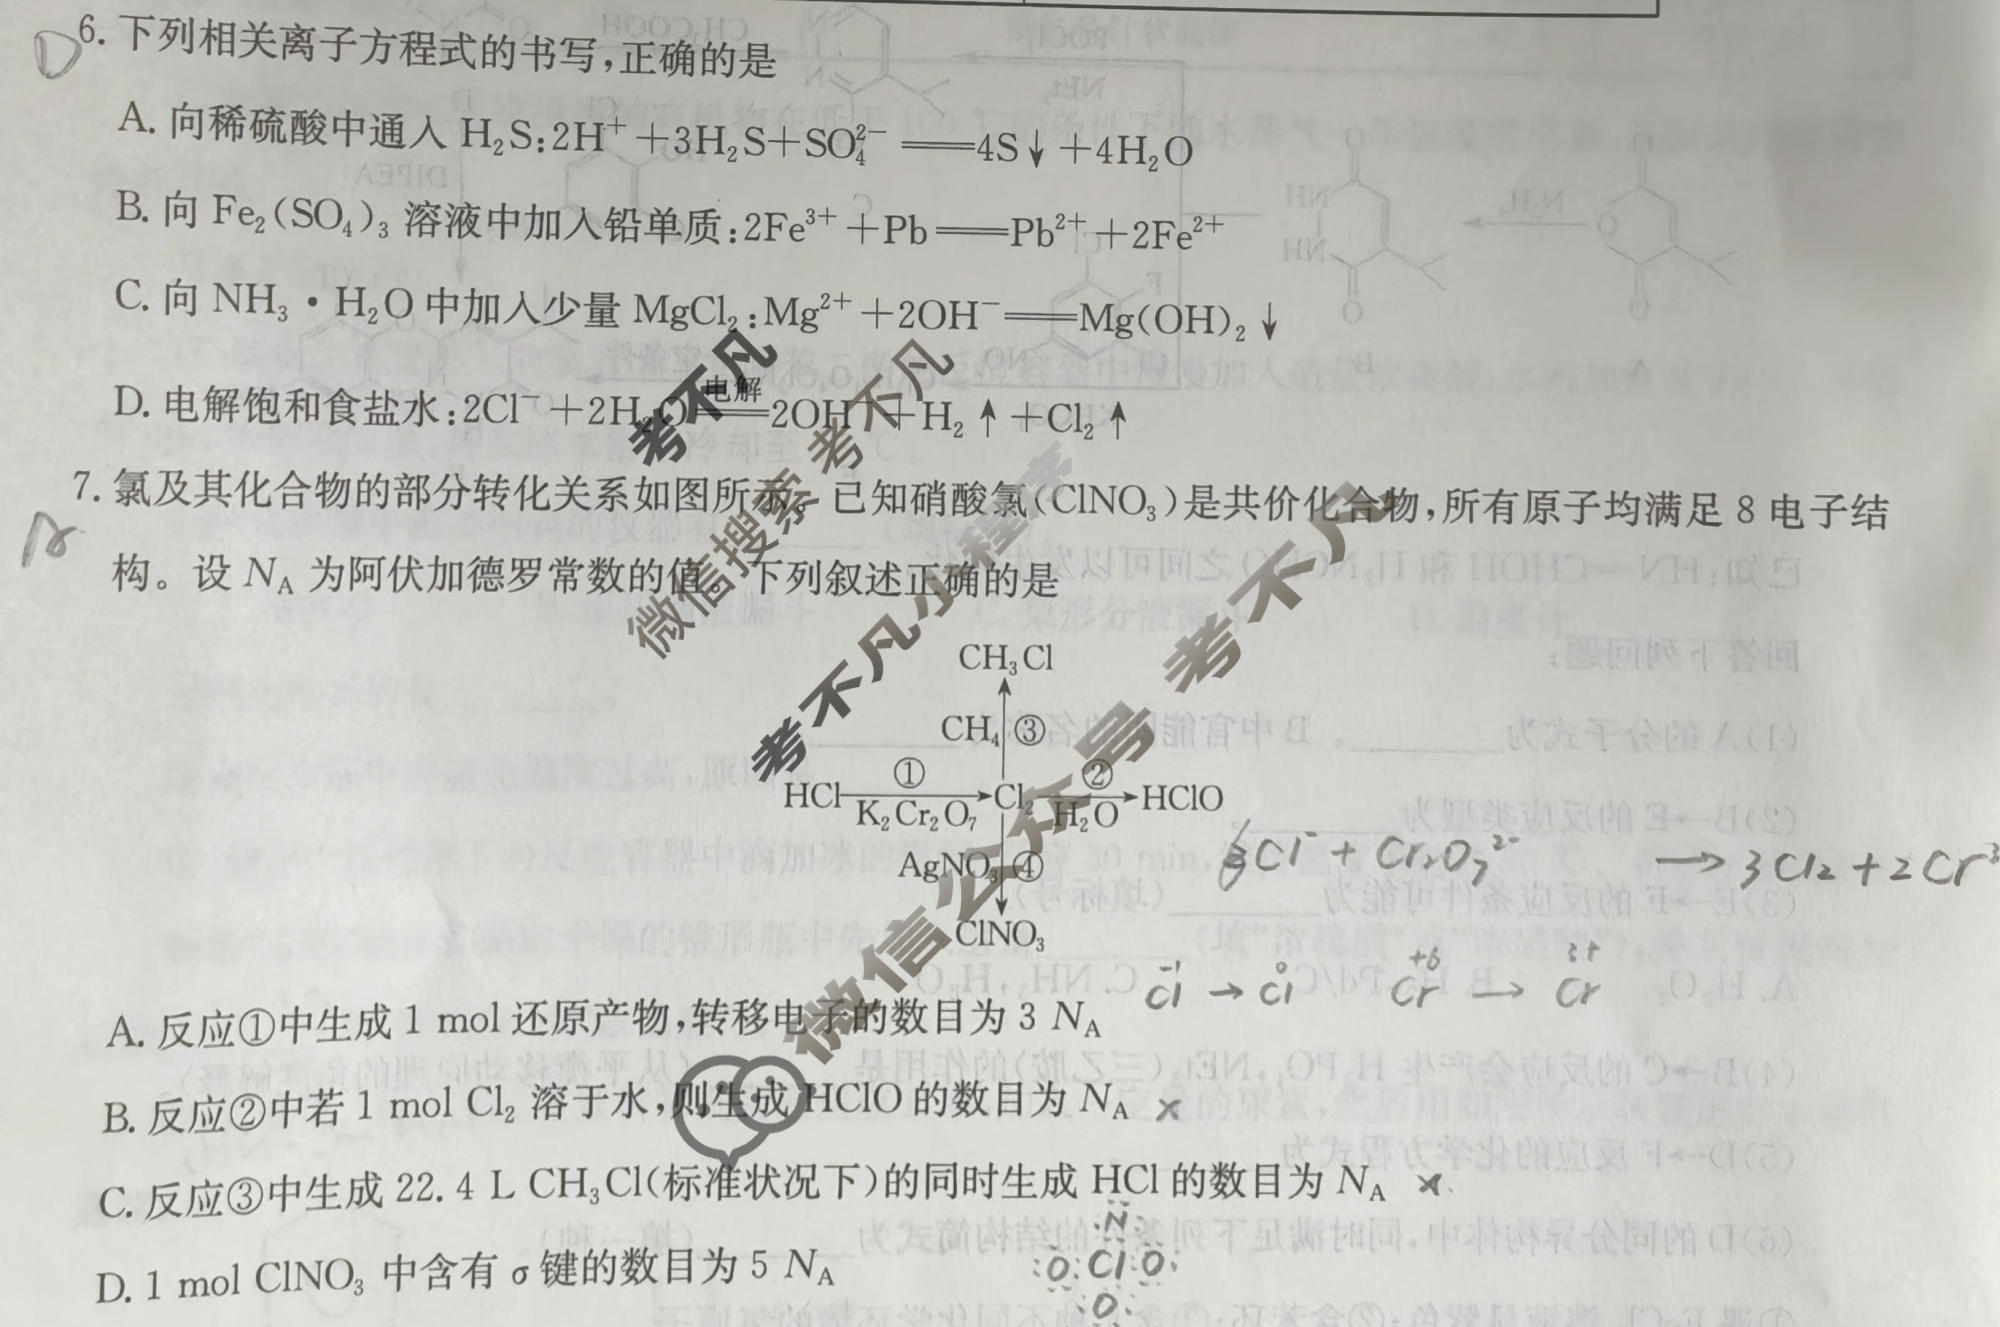 D 6. 下列相关离子方程式的书写,正确的是
A. 向稀硫酸中通入 H₂S:2H⁺+3H₂S+SO₄²⁻══4S↓+4H₂O
B. 向 Fe₂(SO₄)₃ 溶液中加入铅单质:2Fe³⁺+Pb══Pb²⁺+2Fe²⁺
C. 向 NH₃·H₂O 中加入少量 MgCl₂:Mg²⁺+2OH⁻══Mg(OH)₂↓
D. 电解饱和食盐水:2Cl⁻+2H₂O 电解══ 2OH⁻+H₂↑+Cl₂↑
7. 氯及其化合物的部分转化关系如图所示。已知硝酸氯(ClNO₃)是共价化合物,所有原子均满足 8 电子结
构。设 N_A 为阿伏加德罗常数的值。下列叙述正确的是
CH₃Cl
CH₄ ③
HCl ① K₂Cr₂O₇ → Cl₂ ② H₂O → HClO
AgNO₃ ④
ClNO₃
Cl⁻ + Cr₂O₇²⁻ → 3Cl₂ + 2Cr³
A. 反应①中生成 1 mol 还原产物,转移电子的数目为 3 N_A
-1 Cl → 0 Cl +6 Cr → 3+ Cr
B. 反应②中若 1 mol Cl₂ 溶于水,则生成 HClO 的数目为 N_A ×
C. 反应③中生成 22.4 L CH₃Cl(标准状况下)的同时生成 HCl 的数目为 N_A ×
D. 1 mol ClNO₃ 中含有 σ 键的数目为 5 N_A
N
O Cl O
O
考不凡
微信搜索 考不凡
考不凡小程序
微信公众号 考不凡